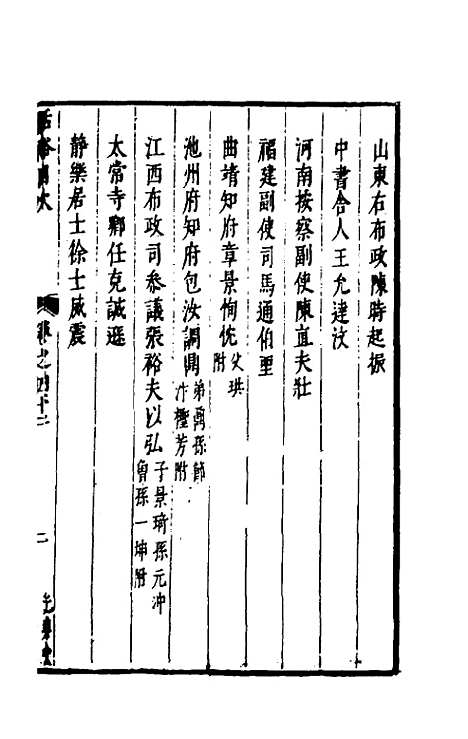 山東右布政陳時起振
中書舍人王允達汶
河南按察副使陳直夫壯
福建副使司馬通伯垔
曲靖知府章景恂忱父珙附
池州府知府包汝調鼎弟禹孫節汴檉芳附
江西布政司參議張裕夫以弘子景琦孫元沖曾孫一坤附
太常寺卿任克誠遜
靜樂居士徐士威震
卷之四十二
二